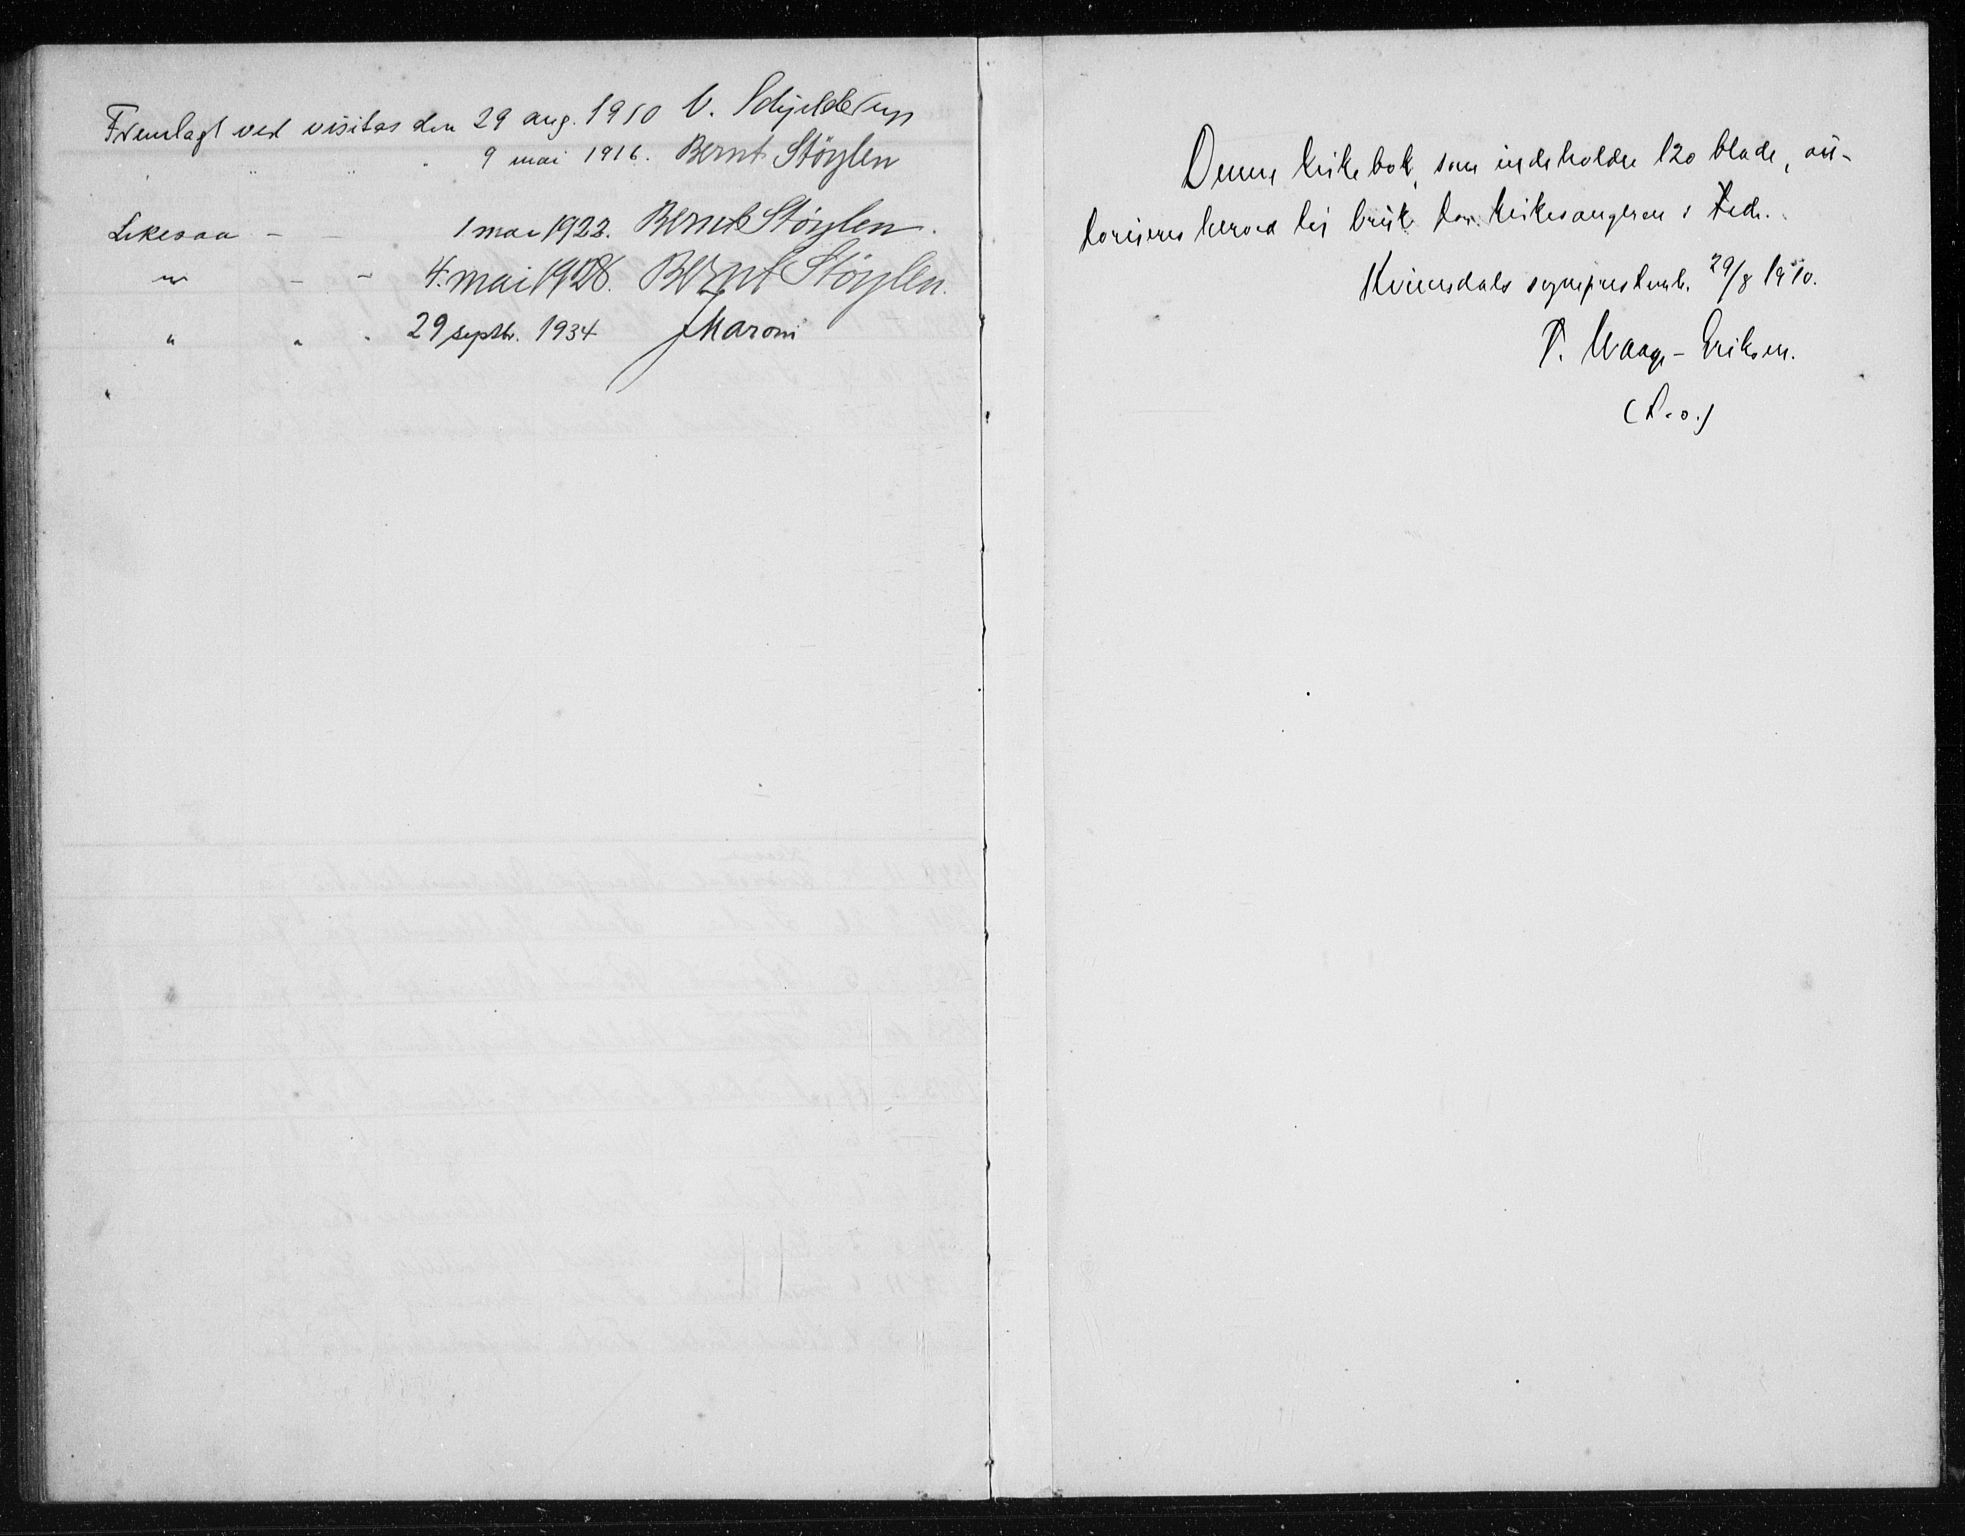 Fremlagt ved visitas den 29 aug. 1910 V. Schjelderup
" " " 9 mai 1916. Bernt Støylen
Likesaa - - 1 mai 1922. Bernt Støylen.
" - - 4. mai 1928. Bernt Støylen.
" " " 29 septbr. 1934 J Maroni
Denne kirkebok, som indeholder 120 blade, au-
toriseres herved til bruk for kirkesangeren i Feda.
Kvinesdals sogneprestemb. 29/8 1910.
P. Waage-Eriksen.